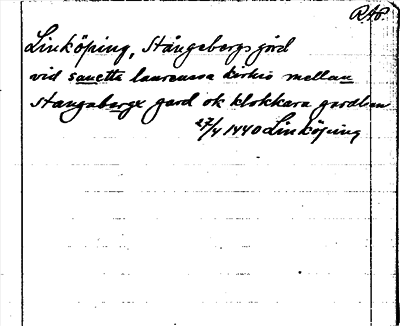 RAP.
Linköping, Stångebergs gård
vid sancta laurenssa kirkio mellan
stangaberge gard ok klokkara gardhen
27/4 1440 Linköping